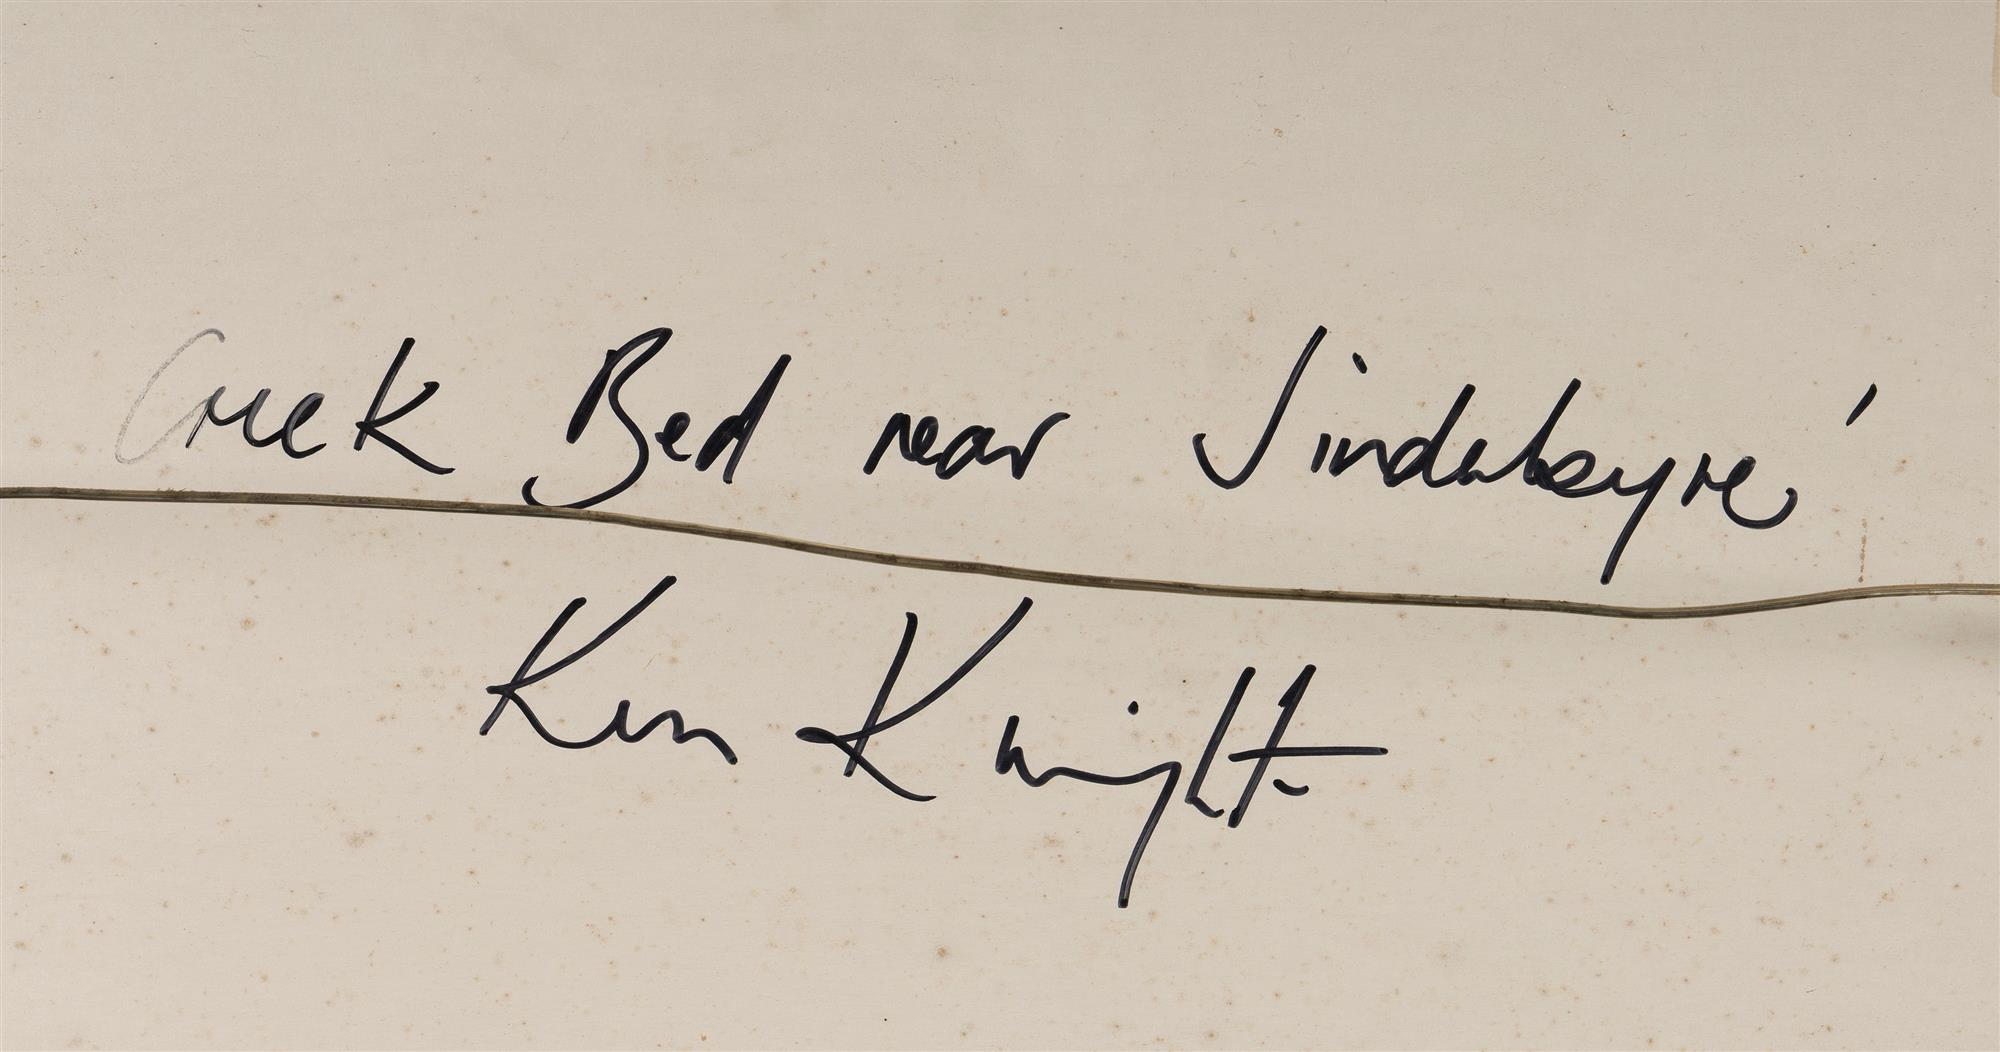 Creek Bed near Jindabyne'
Ken Knight